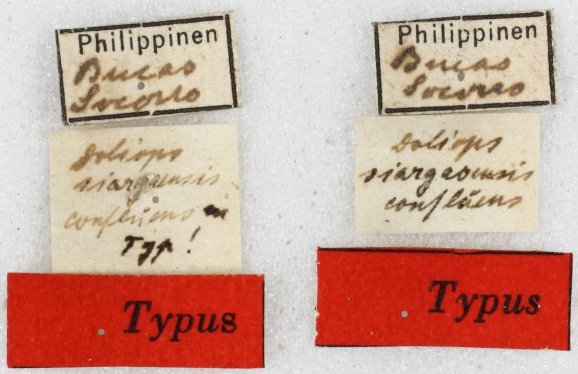 Philippinen
Bucas
Socorro
Doliops
siargaensis
conflüens m
Typ!
Typus
Philippinen
Bucas
Socorro
Doliops
siargaoensis
conflüens
Typus